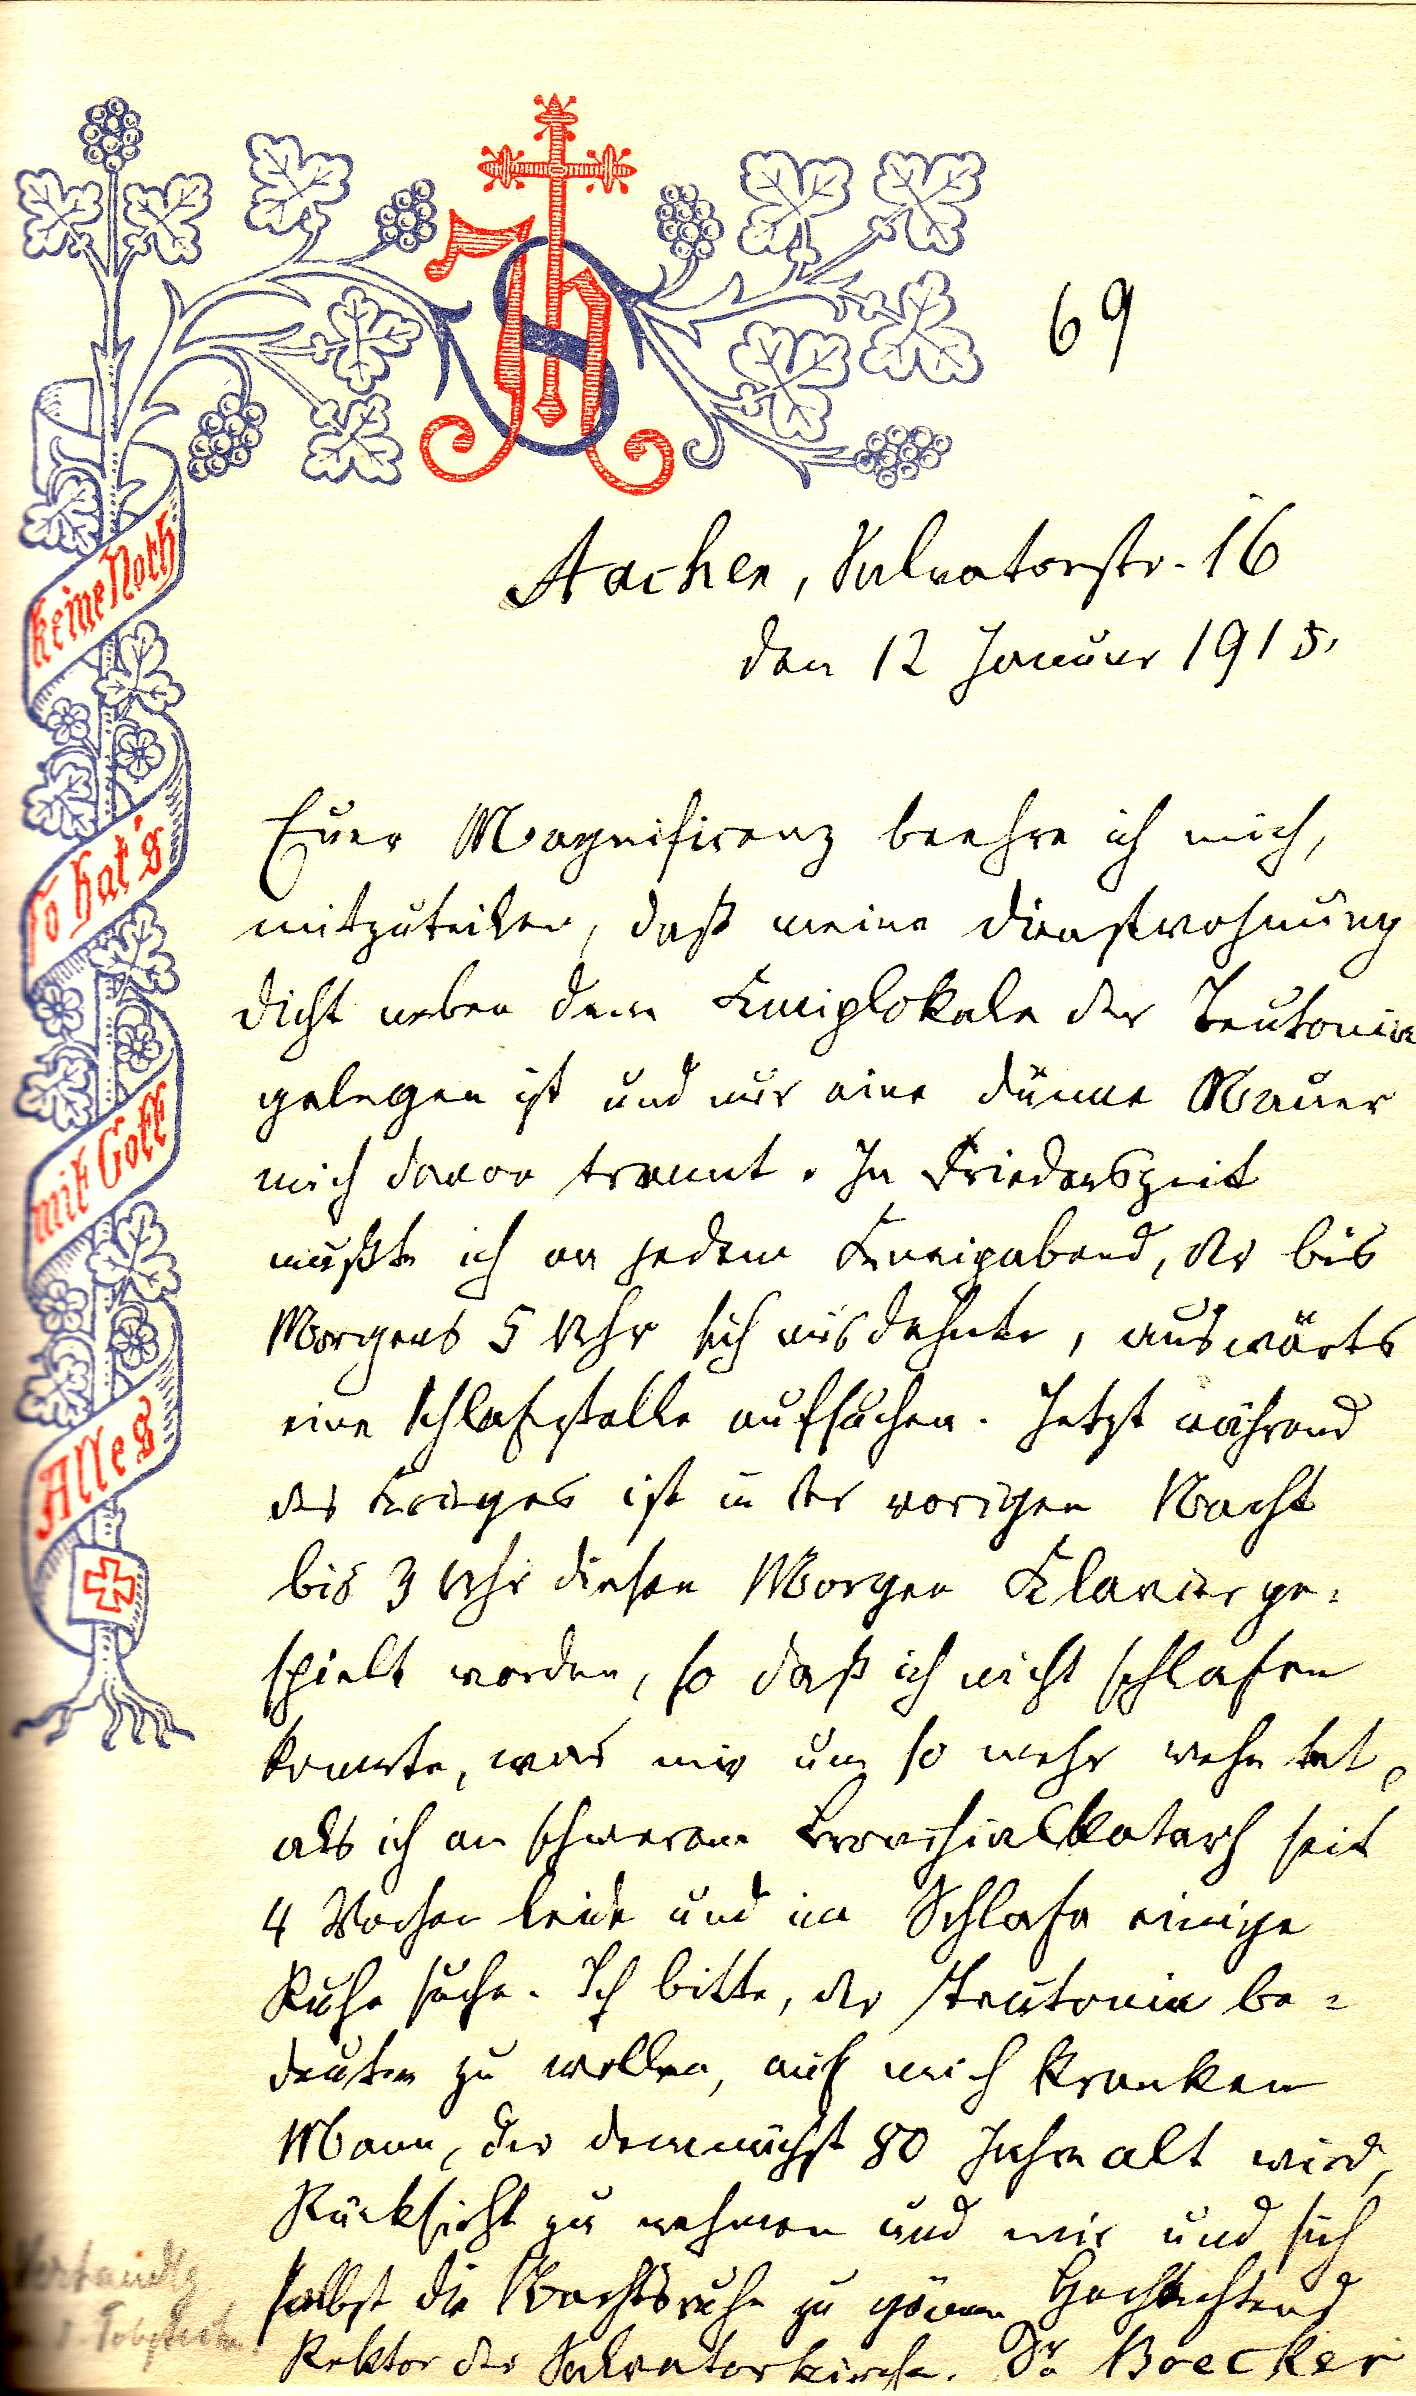 IHS
69
keine Noth
so hat's
mit Gott
Alles
Aachen, Salvatorstr. 16
den 12 Januar 1915.
Euer Magnificenz beehre ich mich,
mitzuteilen, daß meine Dienstwohnung
dicht neben dem Kneiplokale der Teutonia
gelegen ist und nur eine dünne Mauer
mich davon trennt. In Friedenszeit
mußte ich an jedem Kneipabend, der bis
Morgens 5 Uhr sich ausdehnte, auswärts
eine Schlafstelle aufsuchen. Jetzt während
des Krieges ist in der vorigen Nacht
bis 3 Uhr diesen Morgen Klavier ge-
spielt worden, so daß ich nicht schlafen
konnte, was mir um so mehr wehe tat,
als ich an schwerem Bronchialkatarh seit
4 Wochen leide und im Schlafe einige
Ruhe suche. Ich bitte, der Teutonia be-
deuten zu wollen, auf mich kranken
Mann, der demnächst 80 Jahre alt wird,
Rücksicht zu nehmen und mir und sich
selbst die Nachtsruhe zu gönnen Hochachtend
Rektor der Salvatorkirche. Dr Boecker